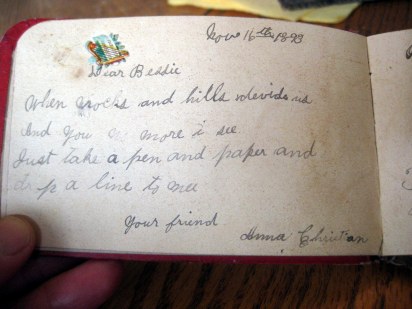 Nov 16th 1893
Dear Bessie
When rocks and hills devide us
And you no more i see
Just take a pen and paper and
drop a line to mee
Your friend
Anna Christian